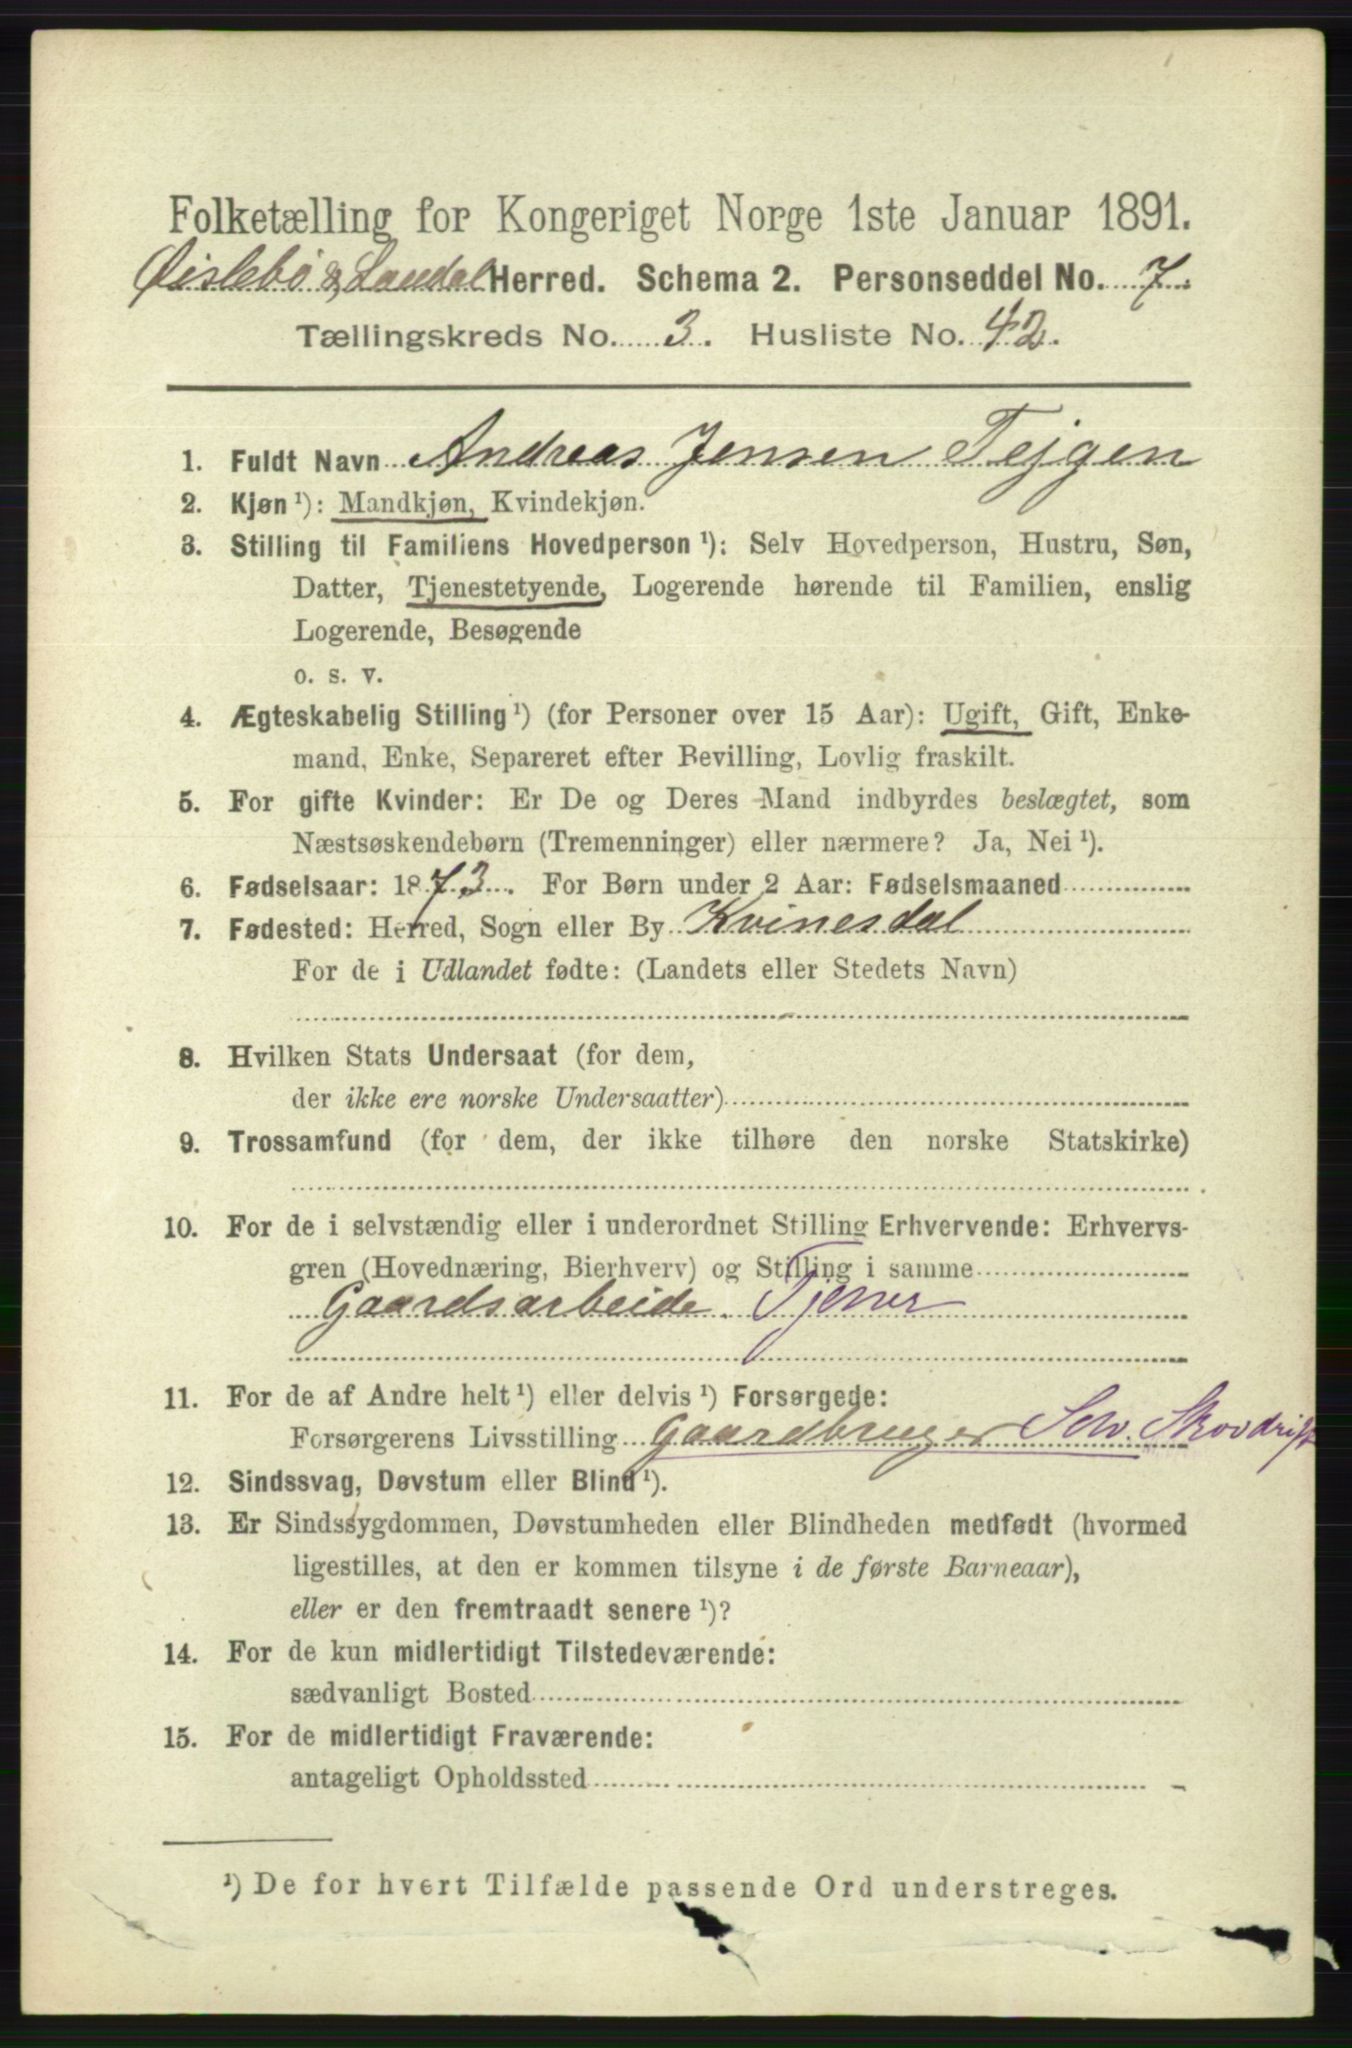 Folketælling for Kongeriget Norge 1ste Januar 1891.
Øislebø & Laudal Herred. Schema 2. Personseddel No. 7.
Tællingskreds No. 3. Husliste No. 42.
1. Fuldt Navn Andreas Jensen Fejgen
2. Kjøn ¹): Mandkjøn, Kvindekjøn.
3. Stilling til Familiens Hovedperson ¹): Selv Hovedperson, Hustru, Søn,
Datter, Tjenestetyende, Logerende hørende til Familien, enslig
Logerende, Besøgende
o. s. v.
4. Ægteskabelig Stilling ¹) (for Personer over 15 Aar): Ugift, Gift, Enke-
mand, Enke, Separeret efter Bevilling, Lovlig fraskilt.
5. For gifte Kvinder: Er De og Deres Mand indbyrdes beslægtet, som
Næstsøskendebørn (Tremenninger) eller nærmere? Ja, Nei ¹).
6. Fødselsaar: 1873. For Børn under 2 Aar: Fødselsmaaned
7. Fødested: Herred, Sogn eller By Kvinesdal
For de i Udlandet fødte: (Landets eller Stedets Navn)
8. Hvilken Stats Undersaat (for dem,
der ikke ere norske Undersaatter)
9. Trossamfund (for dem, der ikke tilhøre den norske Statskirke)
10. For de i selvstændig eller i underordnet Stilling Erhvervende: Erhvervs-
gren (Hovednæring, Bierhverv) og Stilling i samme
Gaardsarbeide. Tjener
11. For de af Andre helt ¹) eller delvis ¹) Forsørgede:
Forsørgerens Livsstilling Gaardbruger Selv. Skovdrift
12. Sindssvag, Døvstum eller Blind ¹).
13. Er Sindssygdommen, Døvstumheden eller Blindheden medfødt (hvormed
ligestilles, at den er kommen tilsyne i de første Barneaar),
eller er den fremtraadt senere ¹)?
14. For de kun midlertidigt Tilstedeværende:
sædvanligt Bosted
15. For de midlertidigt Fraværende:
antageligt Opholdssted
¹) De for hvert Tilfælde passende Ord understreges.